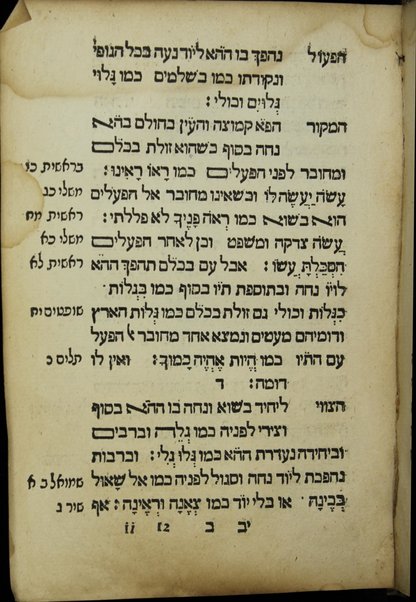 הפעול נהפך בו ההא ליוד נעה בכל הגופי
ונקודתו כמו בשלמים כמו גָּלוּי
גְּלוּיִם וכולי :
המקור הפא קמוצה והעין בחולם בהא
נחה בסוף בשהוא זולת בכלם
ומחובר לפני הפעלים כמו רָאוֹ רָאִינוּ : בראשית כו
עָשׂה יַעֲשֶׂה לּוֹ ובשאינו מחובר אל הפעלים משלי כג
הוא בשוא כמו רְאֹה פָנֶיךָ לא פללתי : ראשית מח
עֲשׂה צדקה ומשפט וכן לאחר הפעלים משלי כא
הִסְכַּלְתָּ עֲשׂוֹ : אבל עם בכלם תהפך ההא ראשית לא
לויו נחה ובתוספת תיו בסוף כמו בִּגְלוֹת
כִּגְלוֹת וכולי גם זולת בכלם כמו גְּלוֹת הארץ שופטים יח
ודומיהם מעטים ונמצא אחד מחובר ל הפעל
עם התיו כמו הֱיוֹת אֶהְיֶה כָמוֹךָ : ואין לו תלים כ
דומה : ד
הצווי ליחיד בשוא ונחה בו ההא בסוף
וצירי לפניה כמו גְּלֵה וברבים
וביחידה נעדרת ההא כמו גְּלוּ גְּלִי : וברבות
נהפכת ליוד נחה וסגול לפניה כמו אל שָׁאוּל שמואל כ א
בְּכֶינָה או בלי יוד כמו צְאֶנָה וּרְאֶינָה : אף שיר ג
יב ב 12 ii